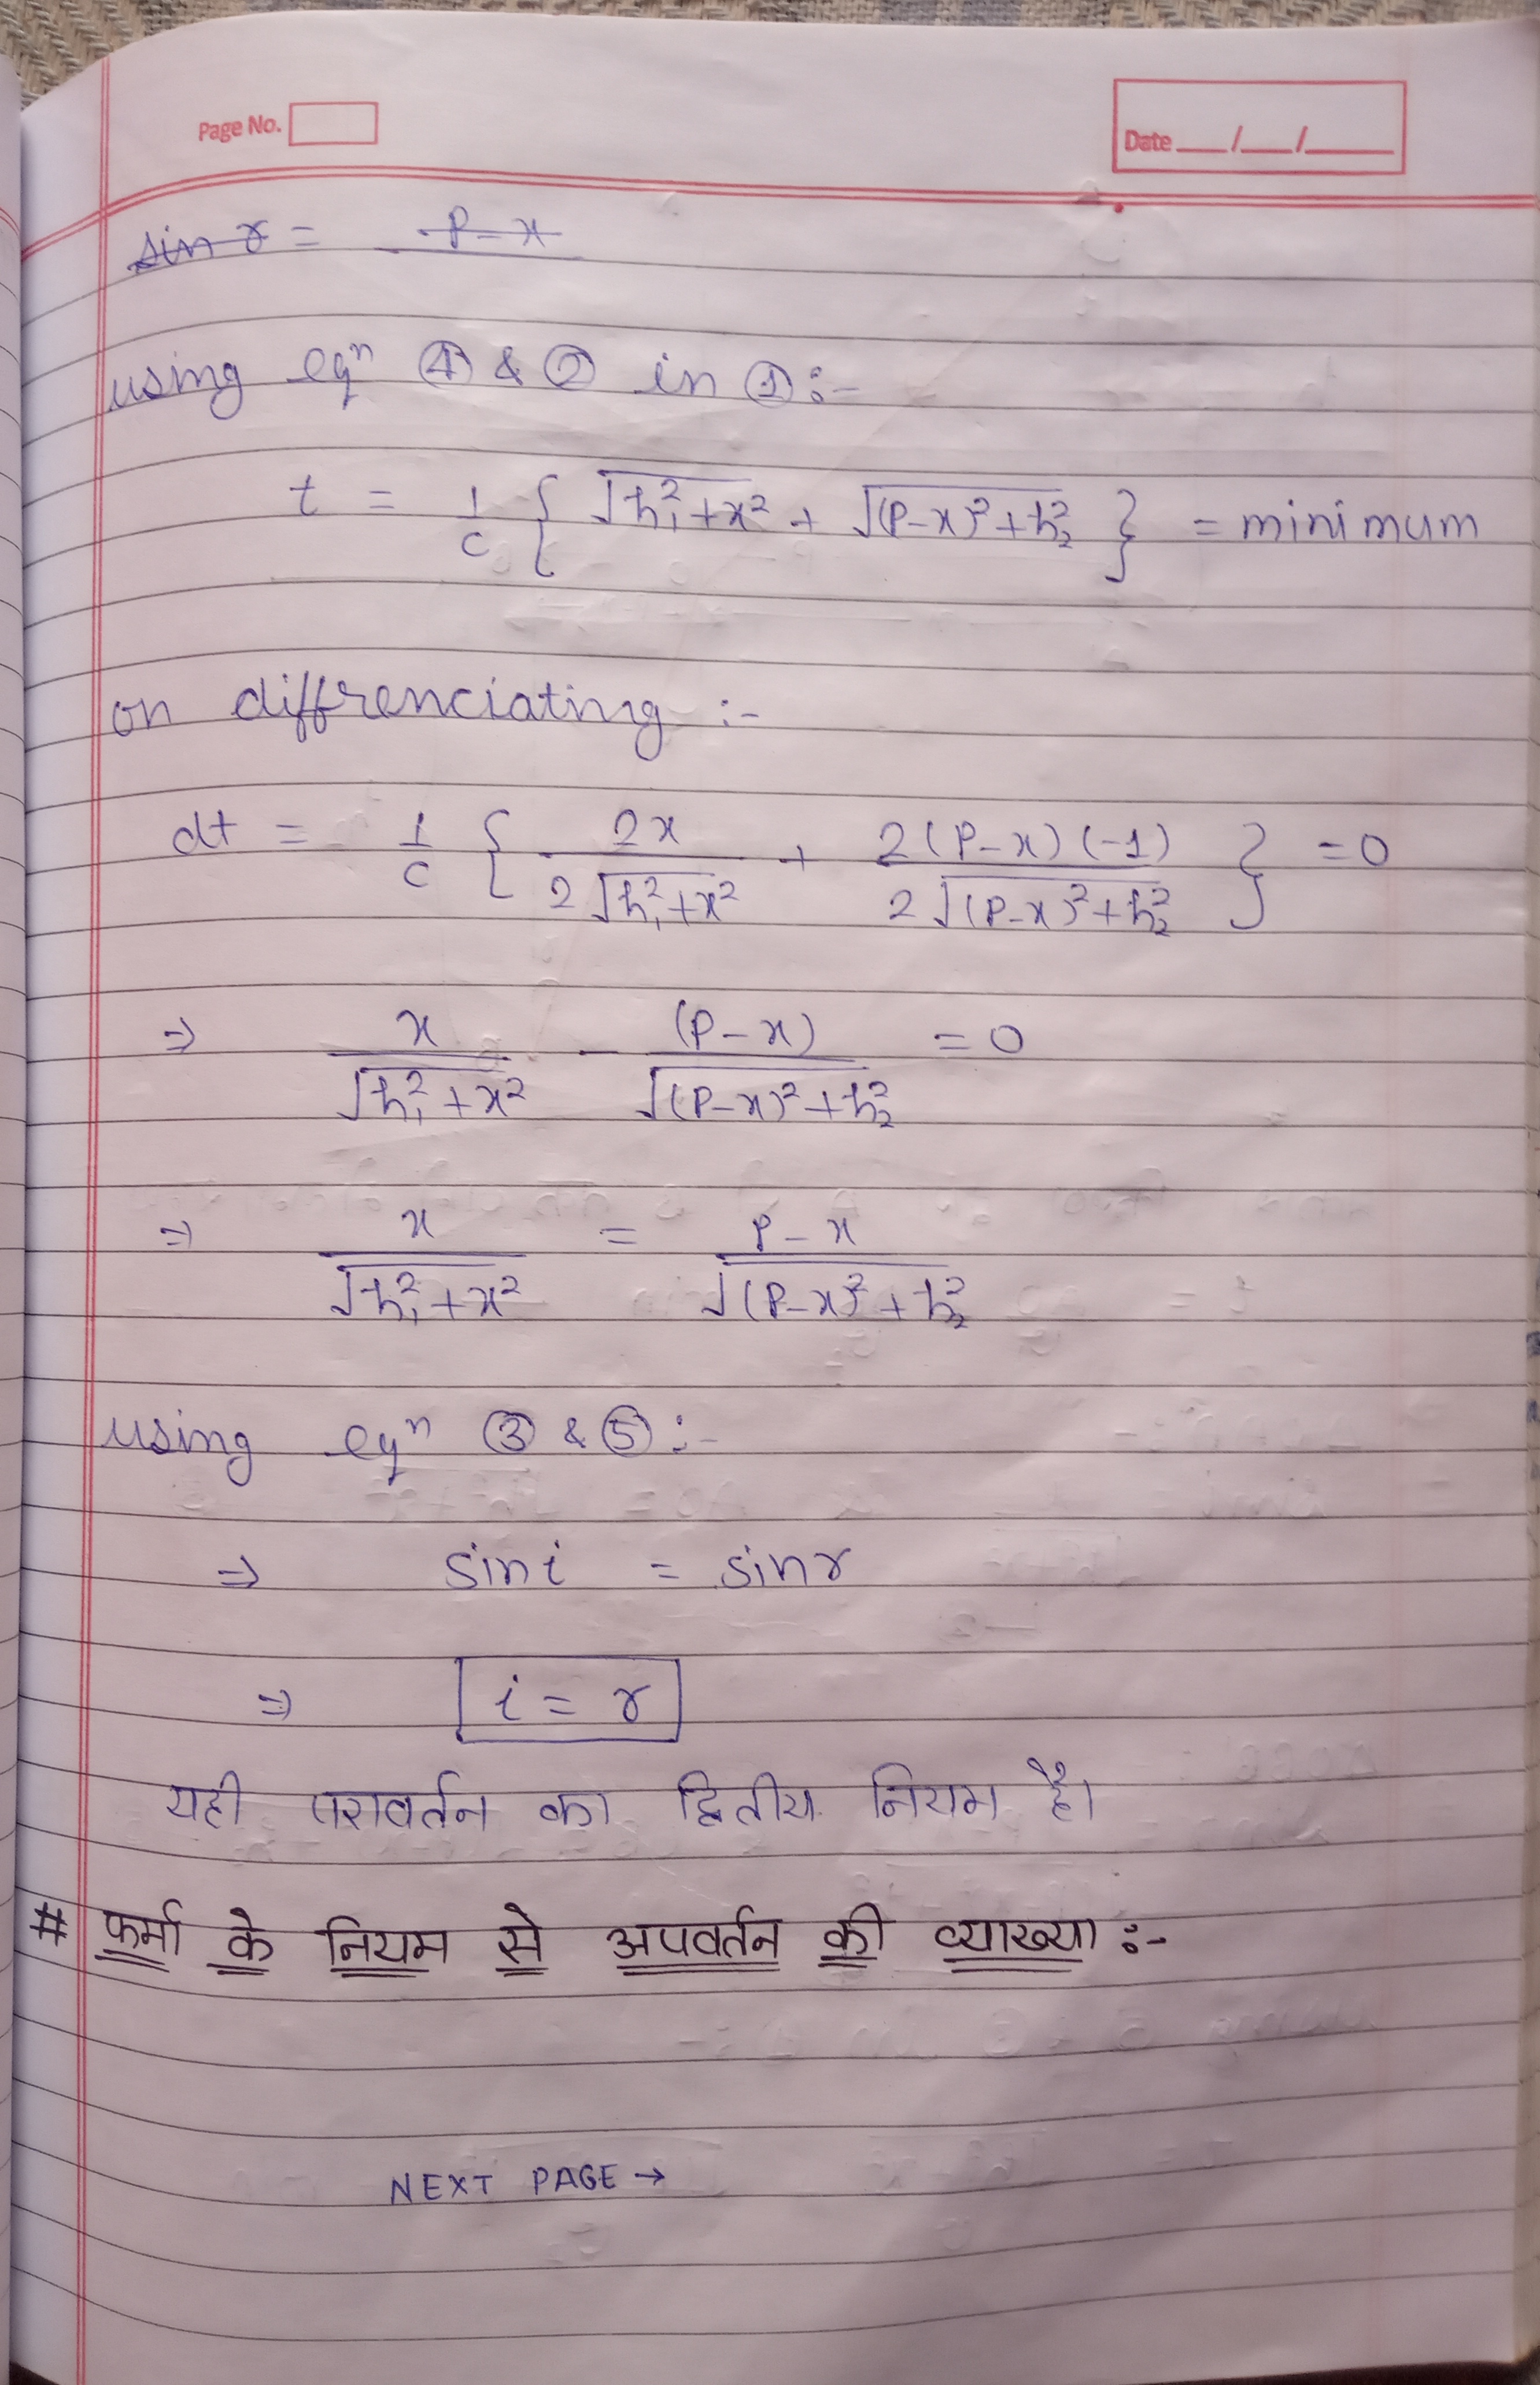 Page No.
Date __/__/____
sin r = P-x
using eqⁿ ④ & ② in ① :-
t = 1/c { √(h₁²+x²) + √((P-x)²+h₂²) } = minimum
on diffrenciating :-
dt = 1/c { 2x / 2√(h₁²+x²) + 2(P-x)(-1) / 2√((P-x)²+h₂²) } = 0
⇒ x / √(h₁²+x²) - (P-x) / √((P-x)²+h₂²) = 0
⇒ x / √(h₁²+x²) = P-x / √((P-x)²+h₂²)
using eqⁿ ③ & ⑤ :-
⇒ sin i = sin r
⇒ i = r
यही परावर्तन का द्वितीय नियम है।
# फर्मा के नियम से अपवर्तन की व्याख्या :-
NEXT PAGE →